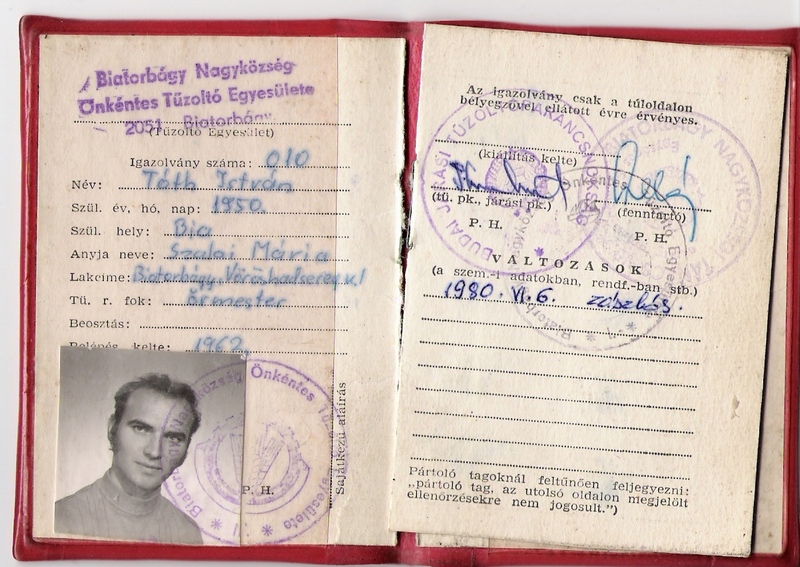 Biatorbágy Nagyközség
Önkéntes Tűzoltó Egyesülete
2051 Biatorbágy
(Tűzoltó Egyesület)
Igazolvány száma: 010
Név: Tóth István
Szül. év, hó, nap: 1950.
Szül. hely: Bia
Anyja neve: Szalai Mária
Lakcíme: Biatorbágy, Vöröshadsereg u. 1
Tű. r. fok: őrmester
Beosztás:
Belépés kelte: 1962.
P. H.
Sajátkezű aláírás
Az igazolvány csak a túloldalon
bélyegzővel ellátott évre érvényes.
(kiállítás kelte)
(tű. pk., járási pk.) (fenntartó)
P. H. P. H.
VÁLTOZÁSOK
(a szem.-i adatokban, rendf.-ban stb.)
1980. VI. 6. zászlós.
Pártoló tagoknál feltűnően feljegyezni:
„pártoló tag, az utolsó oldalon megjelölt
ellenőrzésekre nem jogosult.")